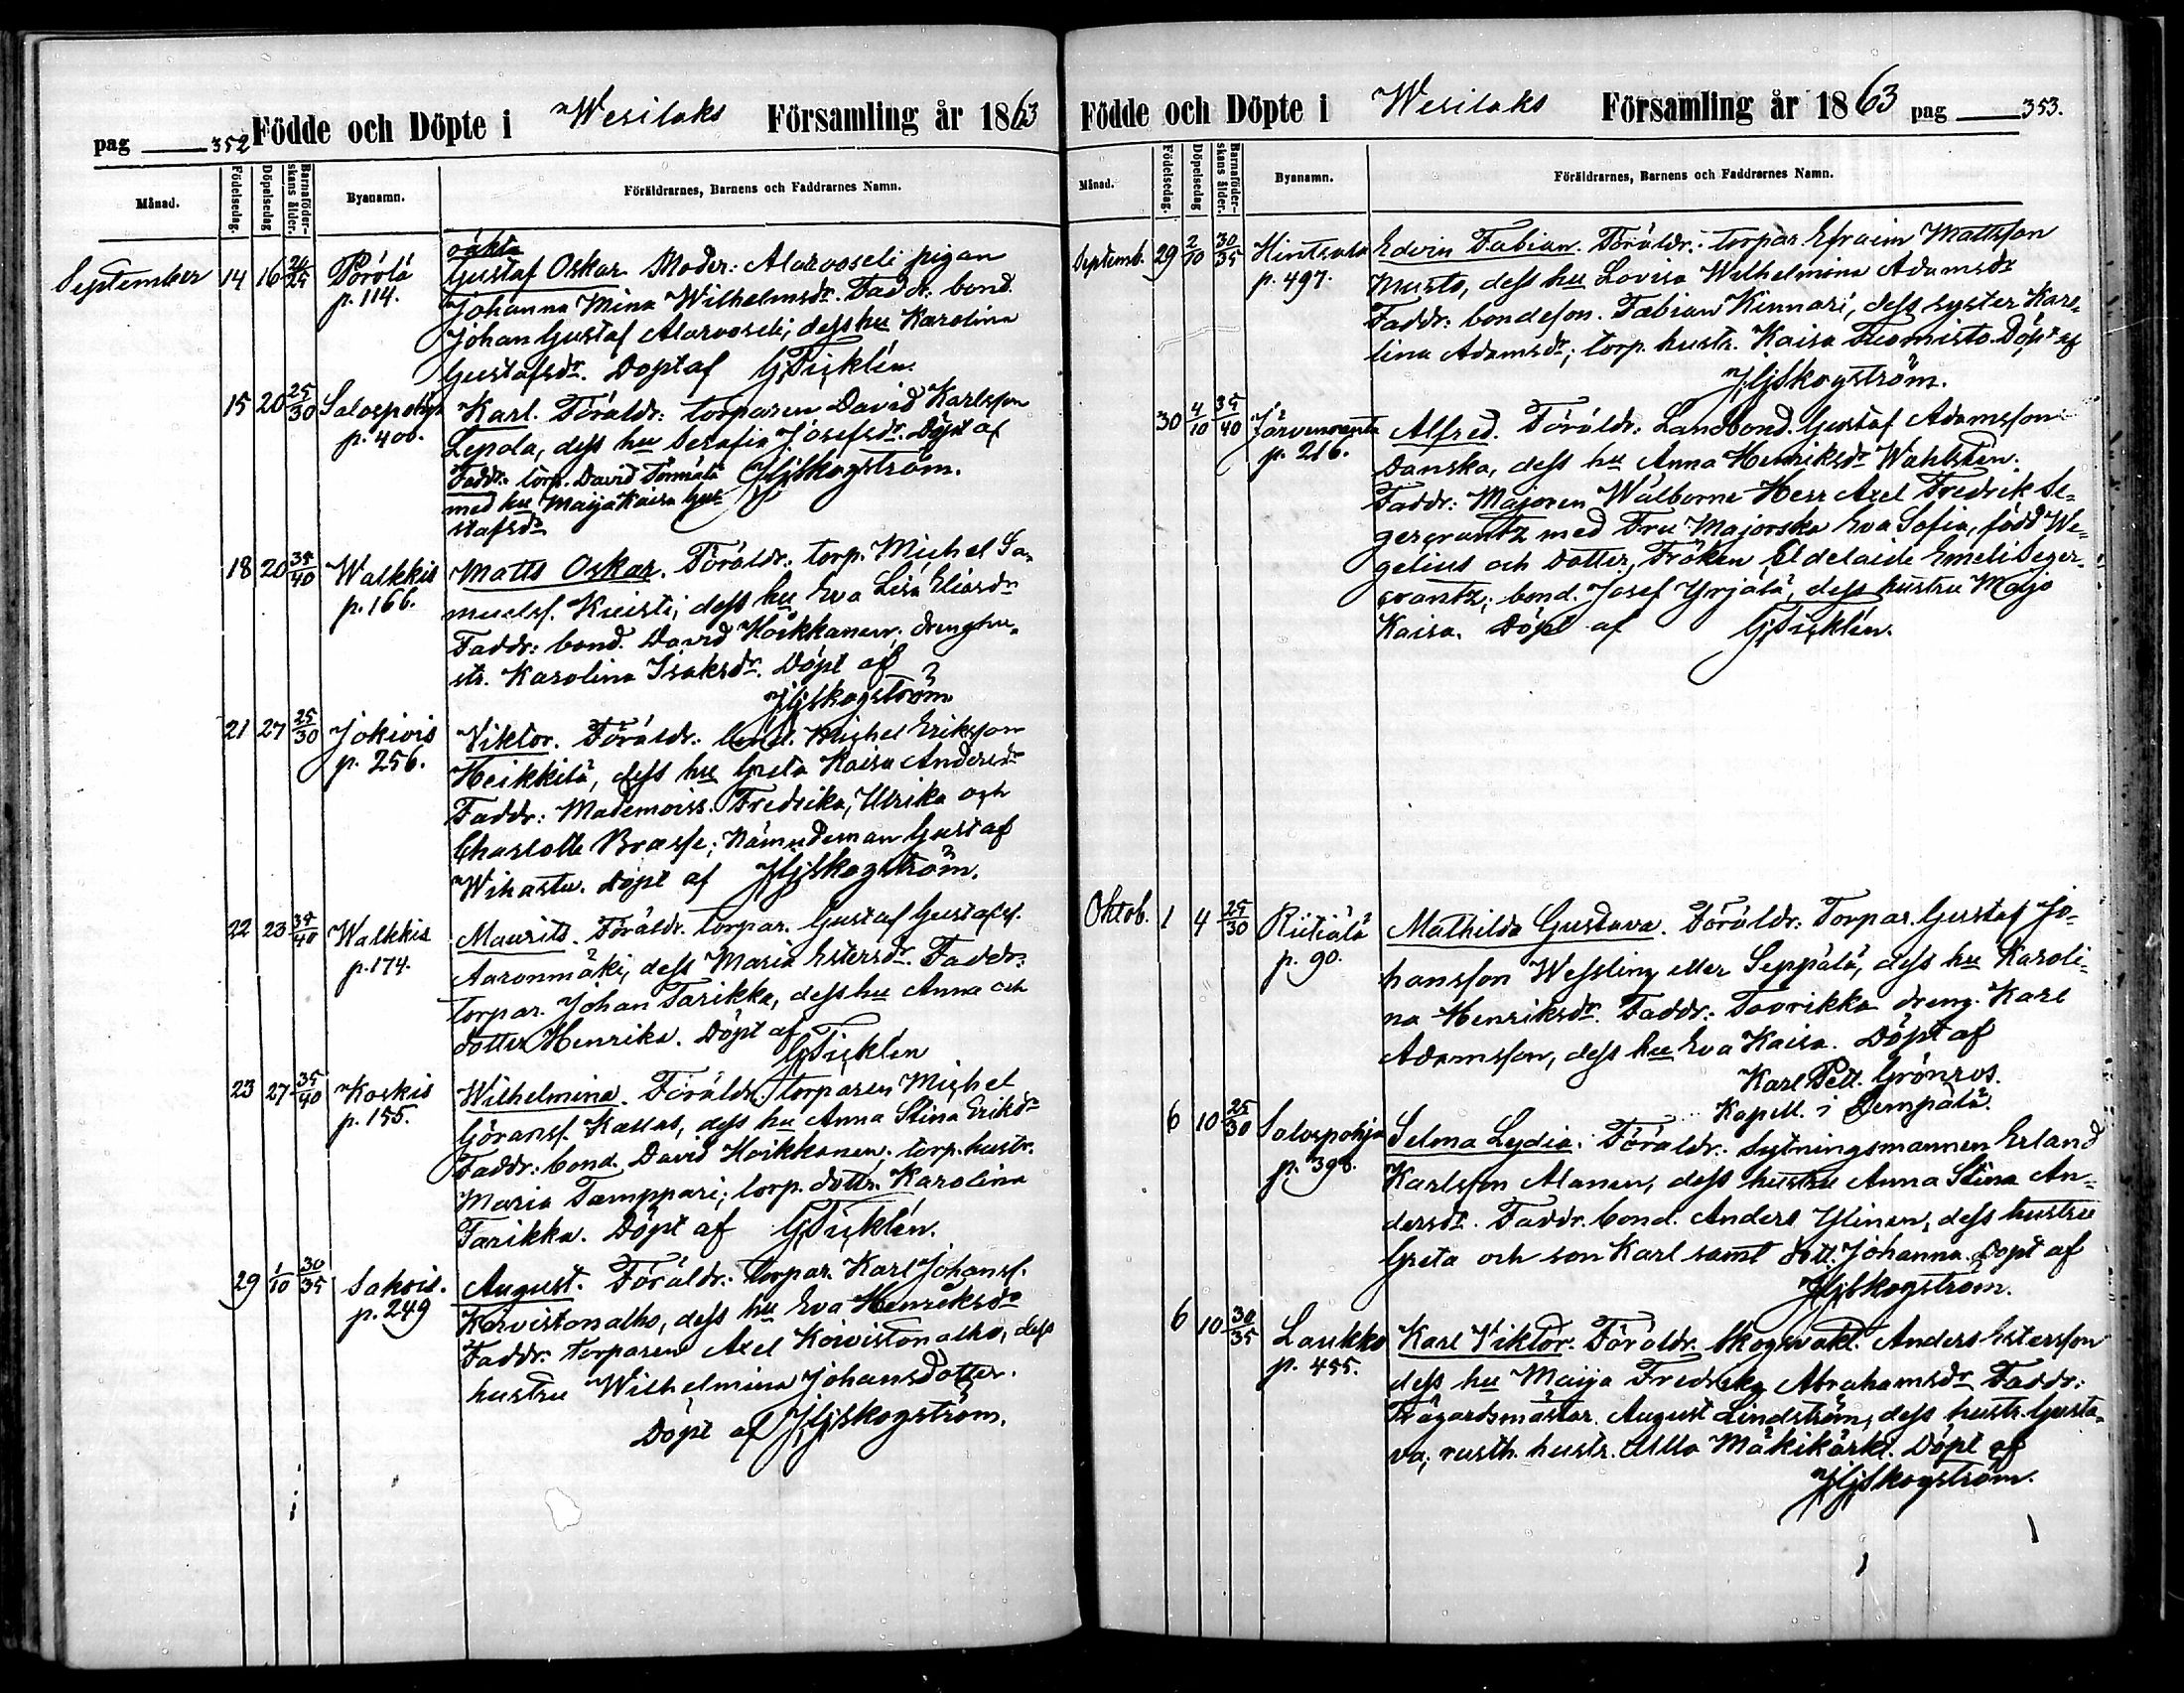 pag 352 Födde och Döpte i Wesilaks Församling år 1863
Månad. Födelsedag. Döpelsedag Barnaföderskans ålder. Byanamn. Föräldrarnes, Barnens och Faddrarnes Namn.
oäkta
September 14 16 20/25 Pörölä Gustaf Oskar. Moder: Alarooseli pigan
p. 114. Johanna Mina Wilhelmsdr. Faddr: bond.
Johan Gustaf Alarooseli; dess hu Karolina
Gustafsdr. Döpt af G. Ticklén.
15 20 25/30 Salospohja Karl. Föräldr: torparen David Karlsson
p. 400. Lepola, dess hu Serafia Josefsdr. Döpt af
Faddr: torp. David Tormälä JGSkogström.
med hu Maija Kaisa Gus
tafsdr
18 20 35/40 Walkkis Matts Oskar. Föräldr: torp. Michel Sa-
p. 166. muelsf. Kuisti; dess hu Eva Lisa Eliasdr
Faddr: bond. David Hoikkanen; drenghu-
str. Karolina Isaksdr. Döpt af
JGSkogström
21 27 25/30 Jokiois Viktor. Föräldr: bond. Michel Eriksson
p. 256. Heikkilä, dess hu Greta Kaisa Andersdr
Faddr: Mademoiss. Fredrika, Ulrika och
Charlotte Brasse; Nämndeman Gustaf
Wihastu. Döpt af JGSkogström.
22 23 35/40 Walkkis Maurits. Föräldr. torpar. Gustaf Gustafsf.
p. 174. Aaronmäki, dess Maria Estersdr. Faddr:
torpar. Johan Tarikka, dess hu Anna och
dotter Henrika. Döpt af
G. Ticklén
23 27 35/40 Koskis Wilhelmina. Föräldr. torparen Michel
p. 155. Göransf. Kallas, dess hu Anna Stina Eriksdr
Faddr: bond. David Hoikkanen; torp. hustr.
Maria Tamppari; torp. dottr. Karolina
Tarikka. Döpt af G. Ticklén.
29 1/10 30/35 Sakois. August. Föräldr: torpar. Karl Johansf.
p. 249 Koivistonalho, dess hu Eva Henriksdr
Faddr: torparen Axel Koivistonalho, dess
hustru Wilhelmina Johansdotter.
Döpt af JGSkogström.
Födde och Döpte i Wesilaks Församling år 1863 pag 353.
Månad. Födelsedag. Döpelsedag Barnaföderskans ålder. Byanamn. Föräldrarnes, Barnens och Faddrarnes Namn.
Septemb. 29 2/10 30/35 Hintsala Edvin Fabian. Föräldr: torpar Efraim Mattsson
p. 497. Musto, dess hu Lovisa Wilhelmina Adamsdr
Faddr: bondeson. Fabian Kinnari, dess syster Karo-
lina Adamsdr; torp. hustr. Kaisa Tuomisto. Döpt af
JGSkogström.
30 4/10 35/40 Järvenranta Alfred. Föräldr: Landbond. Gustaf Adamsson
p. 216. Danska, dess hu Anna Henriksdr Wahlstén.
Faddr: Majoren Wälborne Herr Axel Fredrik Se-
gercrantz med Fru Majorska Eva Sofia, född We-
gelius och dotter, Fröken Adelaide Emeli Seger-
crantz; bond. Josef Yrjälä, dess hustru Maja
Kaisa. Döpt af G. Ticklén.
Oktob. 1 4 25/30 Riitiälä Mathilda Gustava. Föräldr: Torpar. Gustaf Jo-
p. 90. hansson Wessling eller Seppälä, dess hu Karoli-
na Henriksdr. Faddr: Taorikka dreng. Karl
Adamsson, dess hu Eva Kaisa. Döpt af
Karl Pett. Grönros.
Kapell. i Lempälä.
6 10 25/30 Salospohja Selma Lydia. Föräldr: Sytningsmannen Erland
p. 398. Karlsson Alanen, dess hustru Anna Stina An-
dersdr. Faddr. bond. Anders Ylinen, dess hustru
Greta och son Karl samt dott. Johanna. Döpt af
JGSkogström.
6 10 30/35 Laukko Karl Viktor. Föräldr. Skogsvakt. Anders Estersson
p. 455. dess hu Maija Fredrika Abrahamsdr Faddr:
Trägårdsmästar. August Lindström, dess hustr. Gusta-
va; rusth. hustr. Ulla Mäkikärki. Döpt af
JGSkogström.